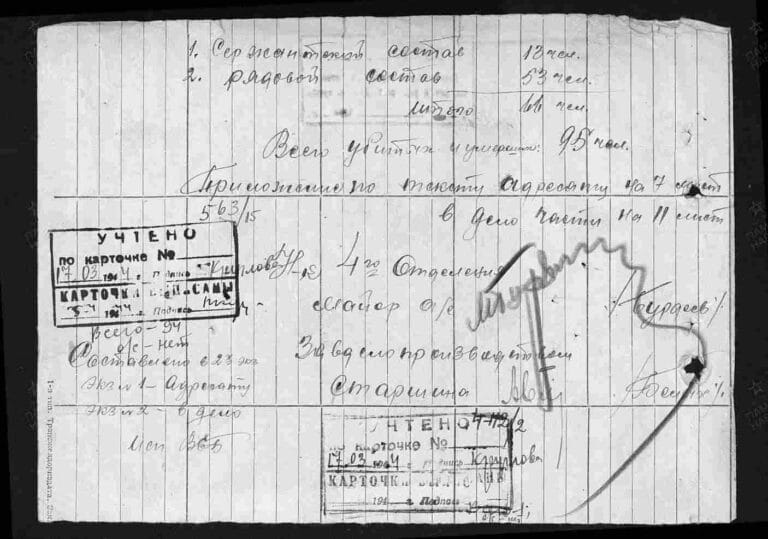 1. Сержантский состав 13 чел.
2. рядовой состав 53 чел.
Итого 66 чел.
Всего убитых и умерших: 95 чел.
Приложение по тексту адресату на 7 лист
563/15 в дело части на 11 лист
УЧТЕНО
по карточке №
17.03 1944 г. подпись Круглова
КАРТОЧКИ
194 г. Подпись
Н-к 4го Отделения
Майор а/с
Всего - 94
о/с - нет
Составлено в 2х экз
Экз №1 - Адресату
Экз №2 - в дело
Исп
Зав делопроизводством
Старшина
УЧТЕНО
по карточке №
17.03 1944 г. подпись Круглова
КАРТОЧКИ
194 г. Подпись